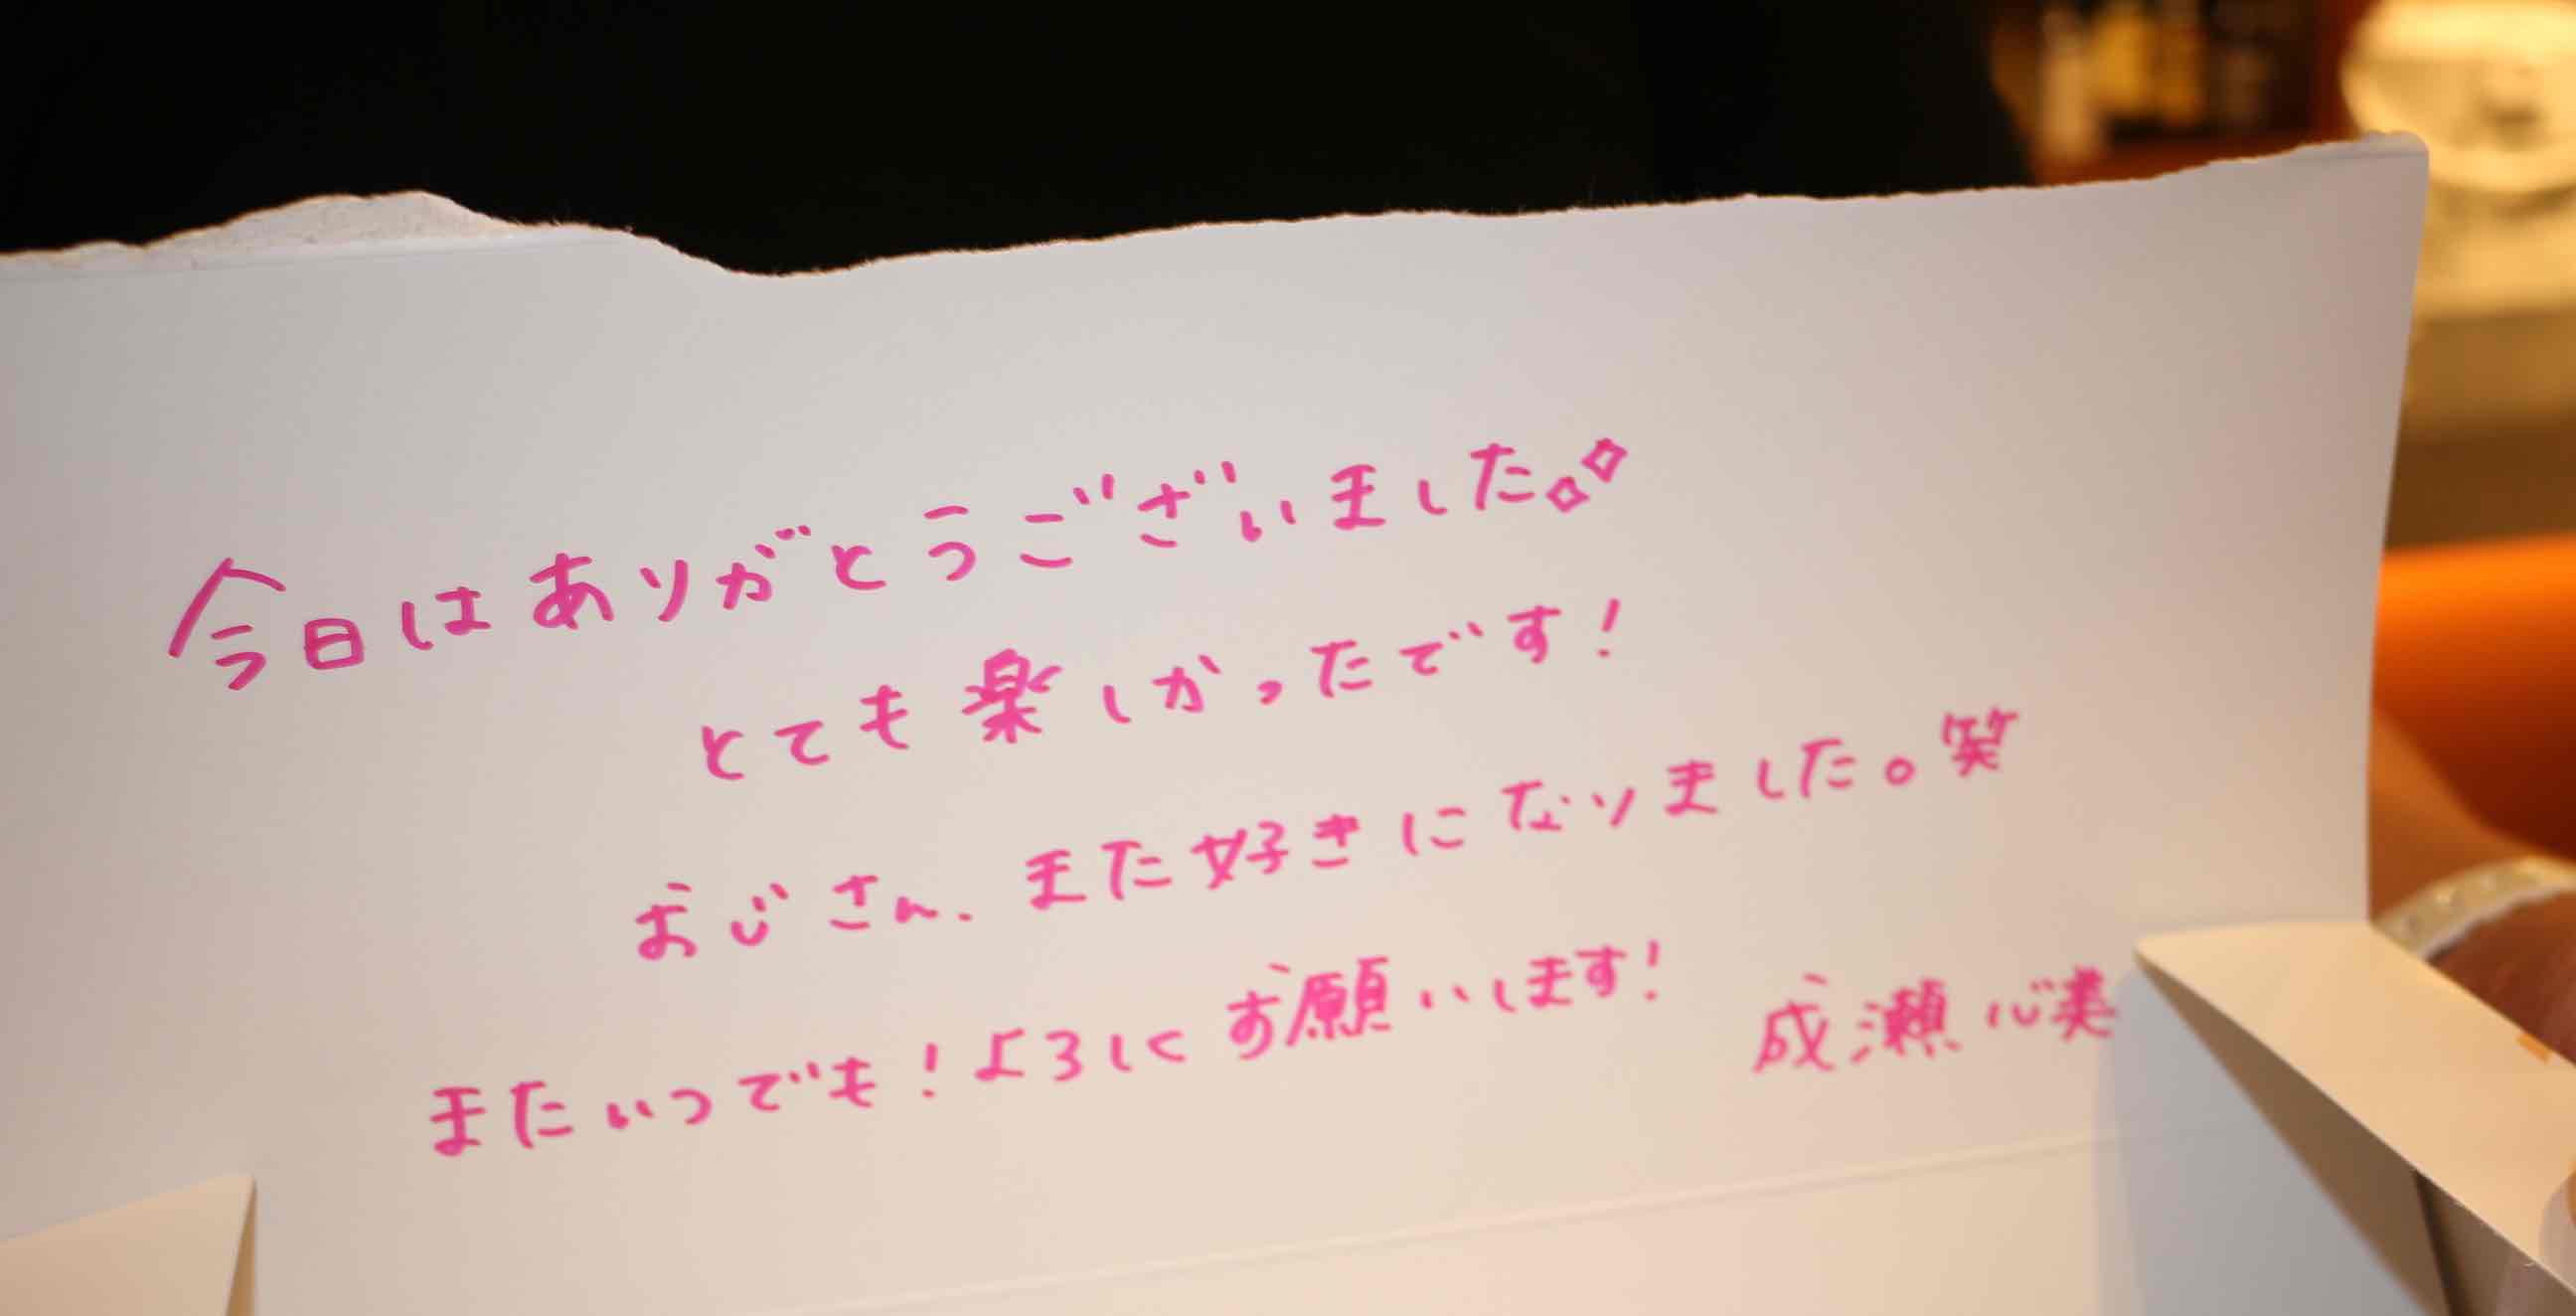 今日はありがとうございました
とても楽しかったです！
おじさん、また好きになりました。笑
またいつでも！よろしくお願いします！ 成瀬心美